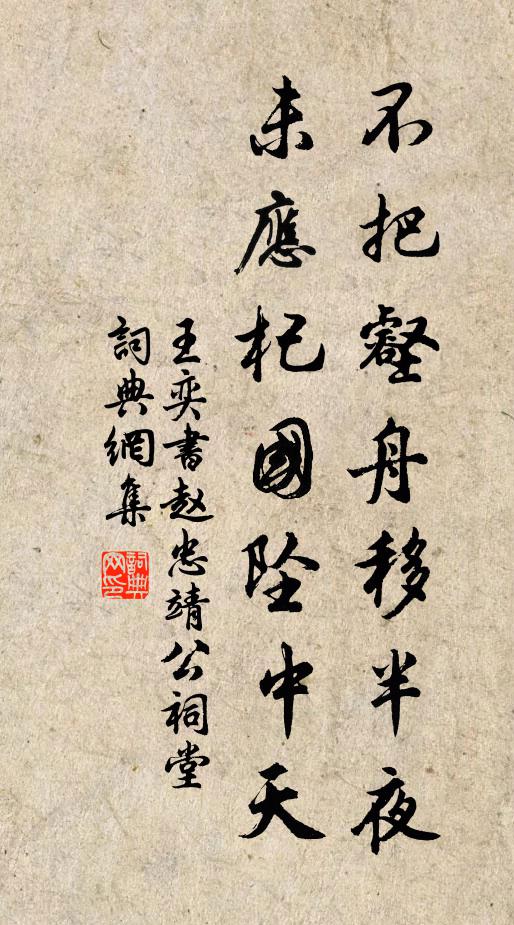 不把壑舟移半夜
未應杞國墜中天
王奕書赵忠靖公祠堂
詞典網集
詞典网印